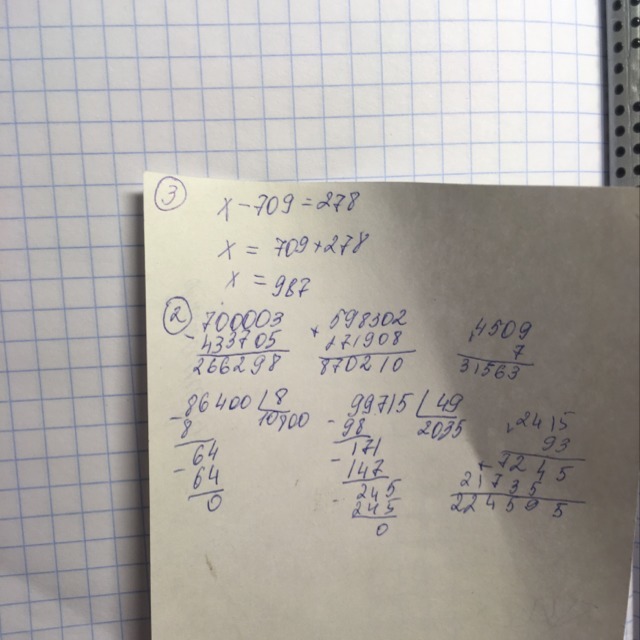 ③
x - 709 = 278
x = 709 + 278
x = 987
②
- 700003
433705
266298
+ 598302
271908
870210
4509
7
31563
- 86400 | 8
10800
8
- 64
64
0
- 99715 | 49
2035
98
- 171
147
- 245
245
0
2415
93
+ 7245
21735
224595